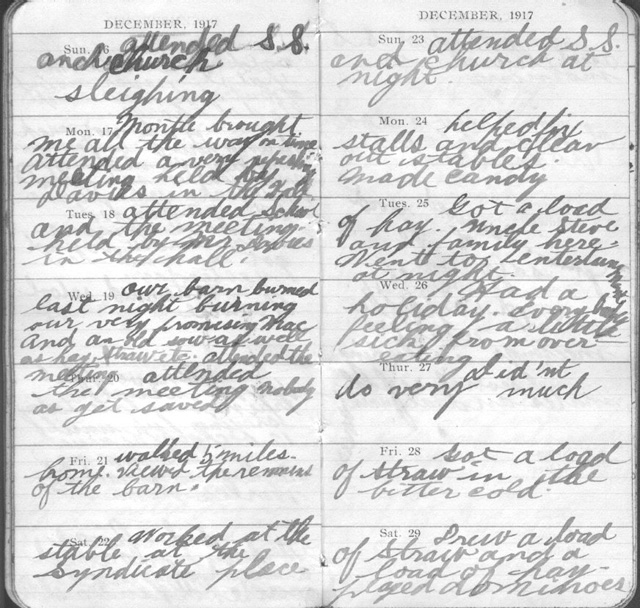 DECEMBER, 1917
Sun. 16 attended S.S.
and church
sleighing
Mon. 17 Montie brought
me all the way on time
attended a very
meeting held by
Davies in the Hall
Tues. 18 attended School
and the meeting
held by Mr Davies
in the hall.
Wed. 19 our barn burned
last night burning
our very promising Mac
and an old sow as well
as hay, straw etc. attended the
meeting
Thur. 20 attended
the meeting nobody
as get saved
Fri. 21 walked 5 miles
home. Viewed the remains
of the barn.
Sat. 22 Worked at the
stable at the
Syndicate place
DECEMBER, 1917
Sun. 23 attended S.S.
and church at
night.
Mon. 24 helped fix
stalls and clear
out stables.
made candy
Tues. 25 Got a load
of hay. Uncle Steve
and family here.
Went to entertainment
at night.
Wed. 26 Had a
holiday. Every body
feeling a little
sick from over
eating
Thur. 27 did'nt
do very much
Fri. 28 Got a load
of straw in the
bitter cold.
Sat. 29 Drew a load
of straw and a
load of hay-
played dominoes